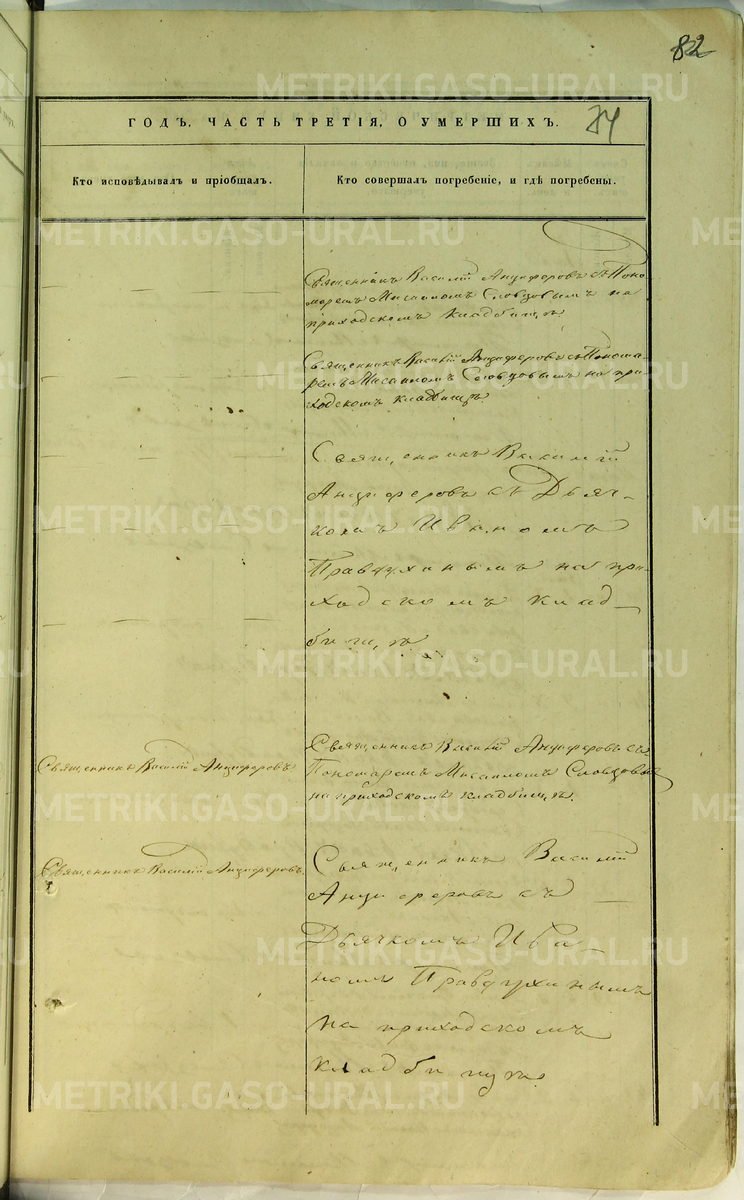 82
ГОДЪ, ЧАСТЬ ТРЕТІЯ, О УМЕРШИХЪ.
Кто исповѣдывалъ и пріобщалъ.
Кто совершалъ погребеніе, и гдѣ погребены.
Священникъ Василій Анциферовъ съ Поно
маремъ Мисаиломъ Словцовымъ на
приходскомъ кладбищѣ
Священникъ Василій Анциферовъ съ Понома
ремъ Мисаиломъ Словцовымъ на при
ходскомъ кладбищѣ
Священникъ Василій
Анциферовъ съ Дьяч-
комъ Иваномъ
Правдухинымъ на при-
ходскомъ клад
бищѣ
Священникъ Василій Анциферовъ
Священникъ Василій Анциферовъ съ
Пономаремъ Мисаиломъ Словцовы
на приходскомъ кладбищѣ.
Священникъ Василій Анциферовъ.
Священникъ Василій
Анциферовъ съ
Дьячкомъ Ива
номъ Правдухинымъ
на приходскомъ
кладбищѣ.
METRIKI.GASO-URAL.RU